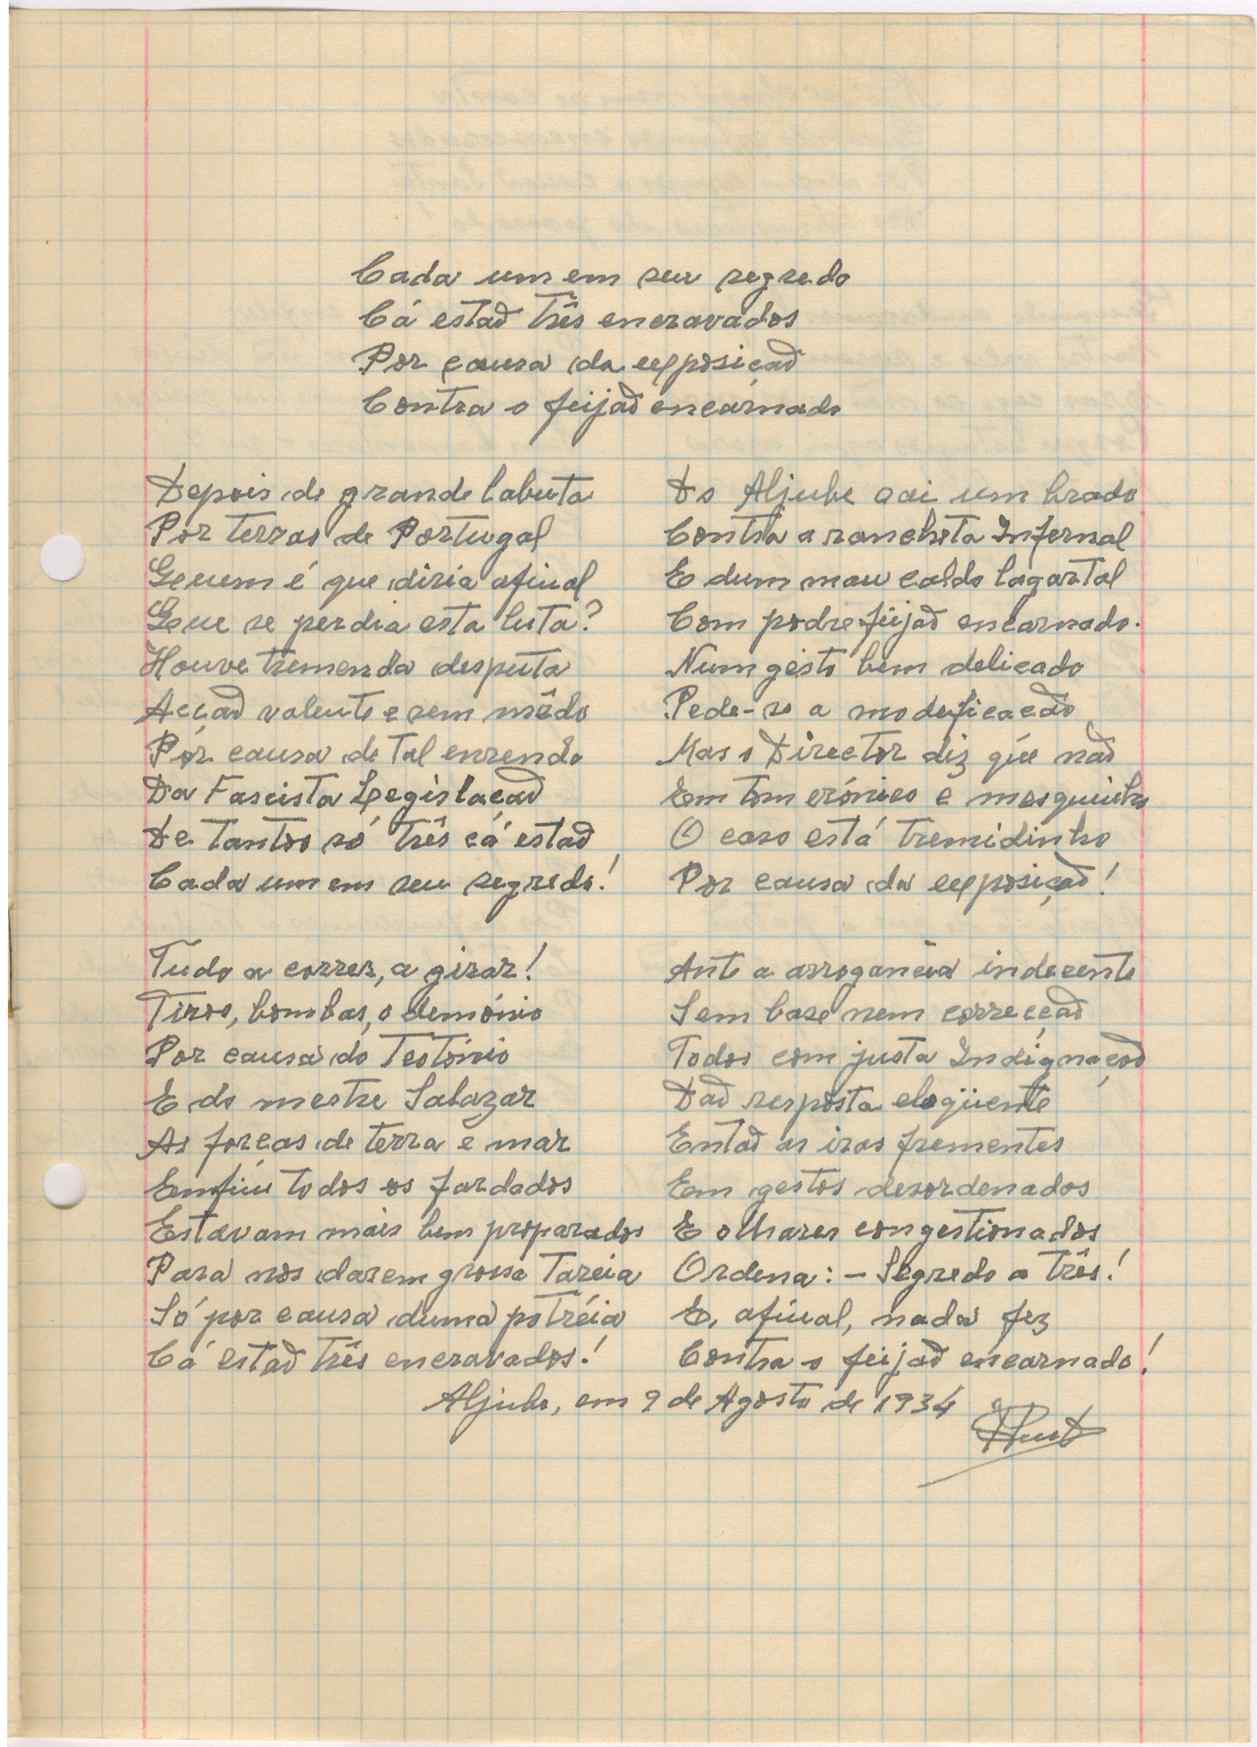 Cada um em seu segredo
Cá estão três encravados
Por causa da exposição
Contra o feijão encarnado
Depois de grande labuta
Por terras de Portugal
Quem é que diria afinal
Que se perdia esta luta?
Houve tremenda desputa
Acção valente e sem mêdo
Pór causa de tal enrendo
Da Fascista Legislação
De tantos só três cá estão
Cada um em seu segredo!
Tudo a correr, a girar!
Tiros, bombas, o demónio
Por causa do Teotónio
E do mestre Salazar
As forças de terra e mar
Emfim todos os fardados
Estavam mais bem proparados
Para nos darem grossa tareia
Só por causa duma potréia
Cá estão três encravados!
Do Aljube sai um brado
Contra a rancheta Infernal
E dum mau caldo lagartal
Com podre feijão encarnado.
Num gésto bem delicado
Pede-se a modeficação
Mas o Director diz que não
Em tom erónico e mesquinho
O caso está tremidinho
Por causa da exposição!
Ante a arrogancia indecente
Sem base nem correcção
Todos com justa Indignação
Dão resposta eloqüente
Então as iras frementes
Em gestos desordenados
E olhares congestionados
Ordena: - Segredo a três!
E, afinal, nada fez
Contra o feijão encarnado!
Aljube, em 9 de Agosto de 1934